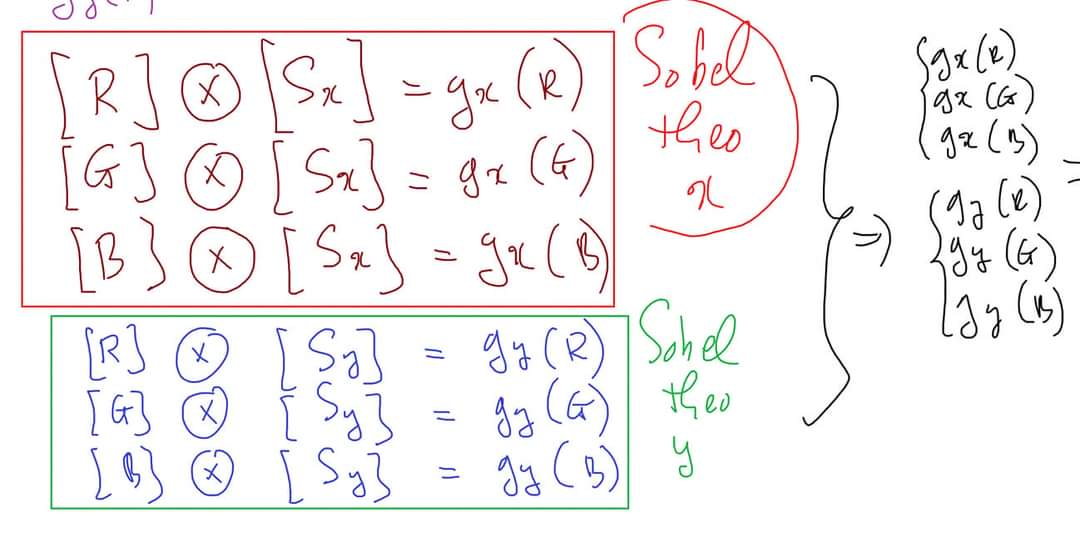 [R] ⊗ [Sx] = gx (R)
[G] ⊗ [Sx] = gx (G)
[B] ⊗ [Sx] = gx (B)
Sobel
theo
x
[R] ⊗ [Sy] = gy (R)
[G] ⊗ [Sy] = gy (G)
[B] ⊗ [Sy] = gy (B)
Sobel
theo
y
=>
{gx (R)
gx (G)
gx (B)
{gy (R)
gy (G)
gy (B)